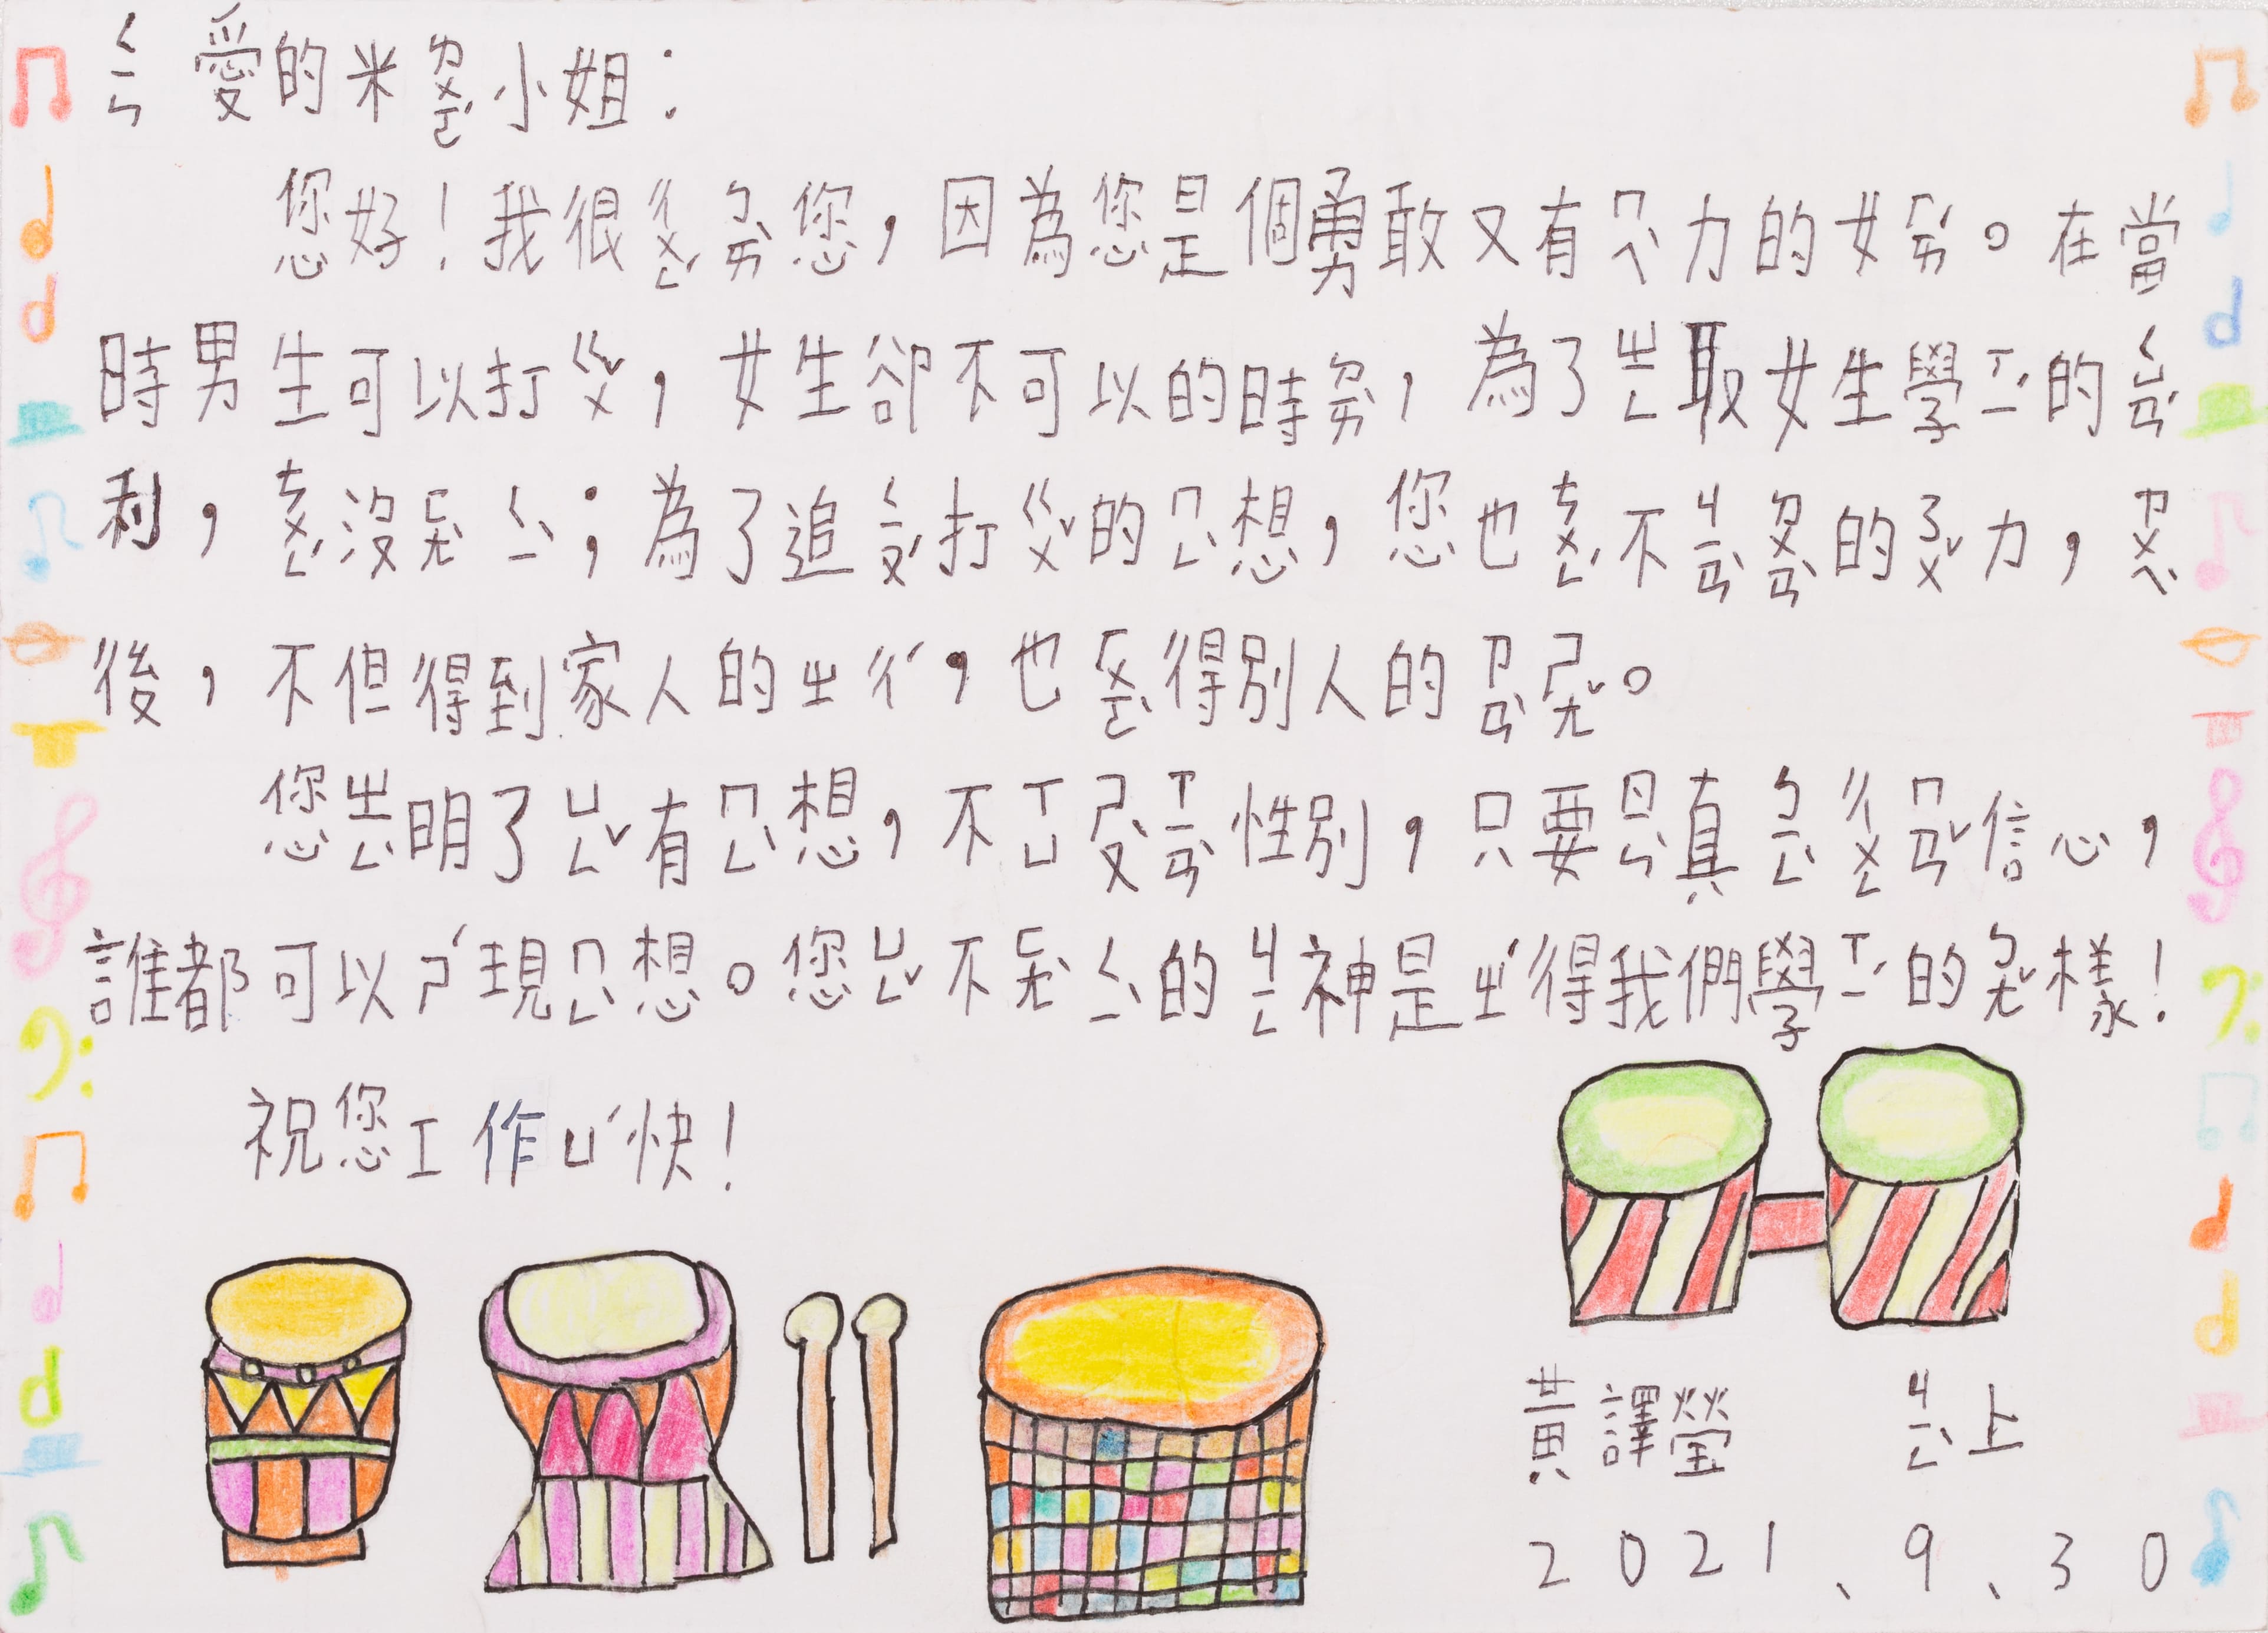 ㄑㄧㄣ愛的米ㄌㄨㄛˋ小姐：
您好！我很ㄔㄨㄥˊㄅㄞˋ您，因為您是個勇敢又有ㄇㄟˋ力的女ㄏㄞˊ。在當
時男生可以打ㄍㄨˇ，女生卻不可以的時ㄉㄞˋ，為了ㄓㄥ取女生學ㄒㄧˊ的ㄑㄩㄢˊ
利，ㄘㄨㄥˊ沒ㄈㄤˋㄑㄧˋ；為了追ㄑㄧㄡˊ打ㄍㄨˇ的ㄇㄥˋ想，您也ㄘㄨㄥˊ不ㄐㄧㄢˋㄉㄨㄢˋ的ㄋㄨˇ力，ㄗㄨㄟˋ
後，不但得到家人的ㄓㄔˊ，也ㄏㄨㄛˋ得別人的ㄗㄢˋㄕㄤˇ。
您ㄓㄥˋ明了ㄩㄥˇ有ㄇㄥˋ想，不ㄒㄩㄕㄡˋㄒㄧㄢˋ性別，只要ㄖㄣˋ真ㄅㄧㄥˋㄔㄨㄥㄇㄢˇ信心，
誰都可以ㄕˊ現ㄇㄥˋ想。您ㄩㄥˇ不ㄈㄤˋㄑㄧˋ的ㄐㄧㄥ神是ㄓˊ得我們學ㄒㄧˊ的ㄅㄤˇ樣！
祝您工作ㄩˊ快！
黃譯瑩　ㄐㄧㄥˋ上
2021、9、30